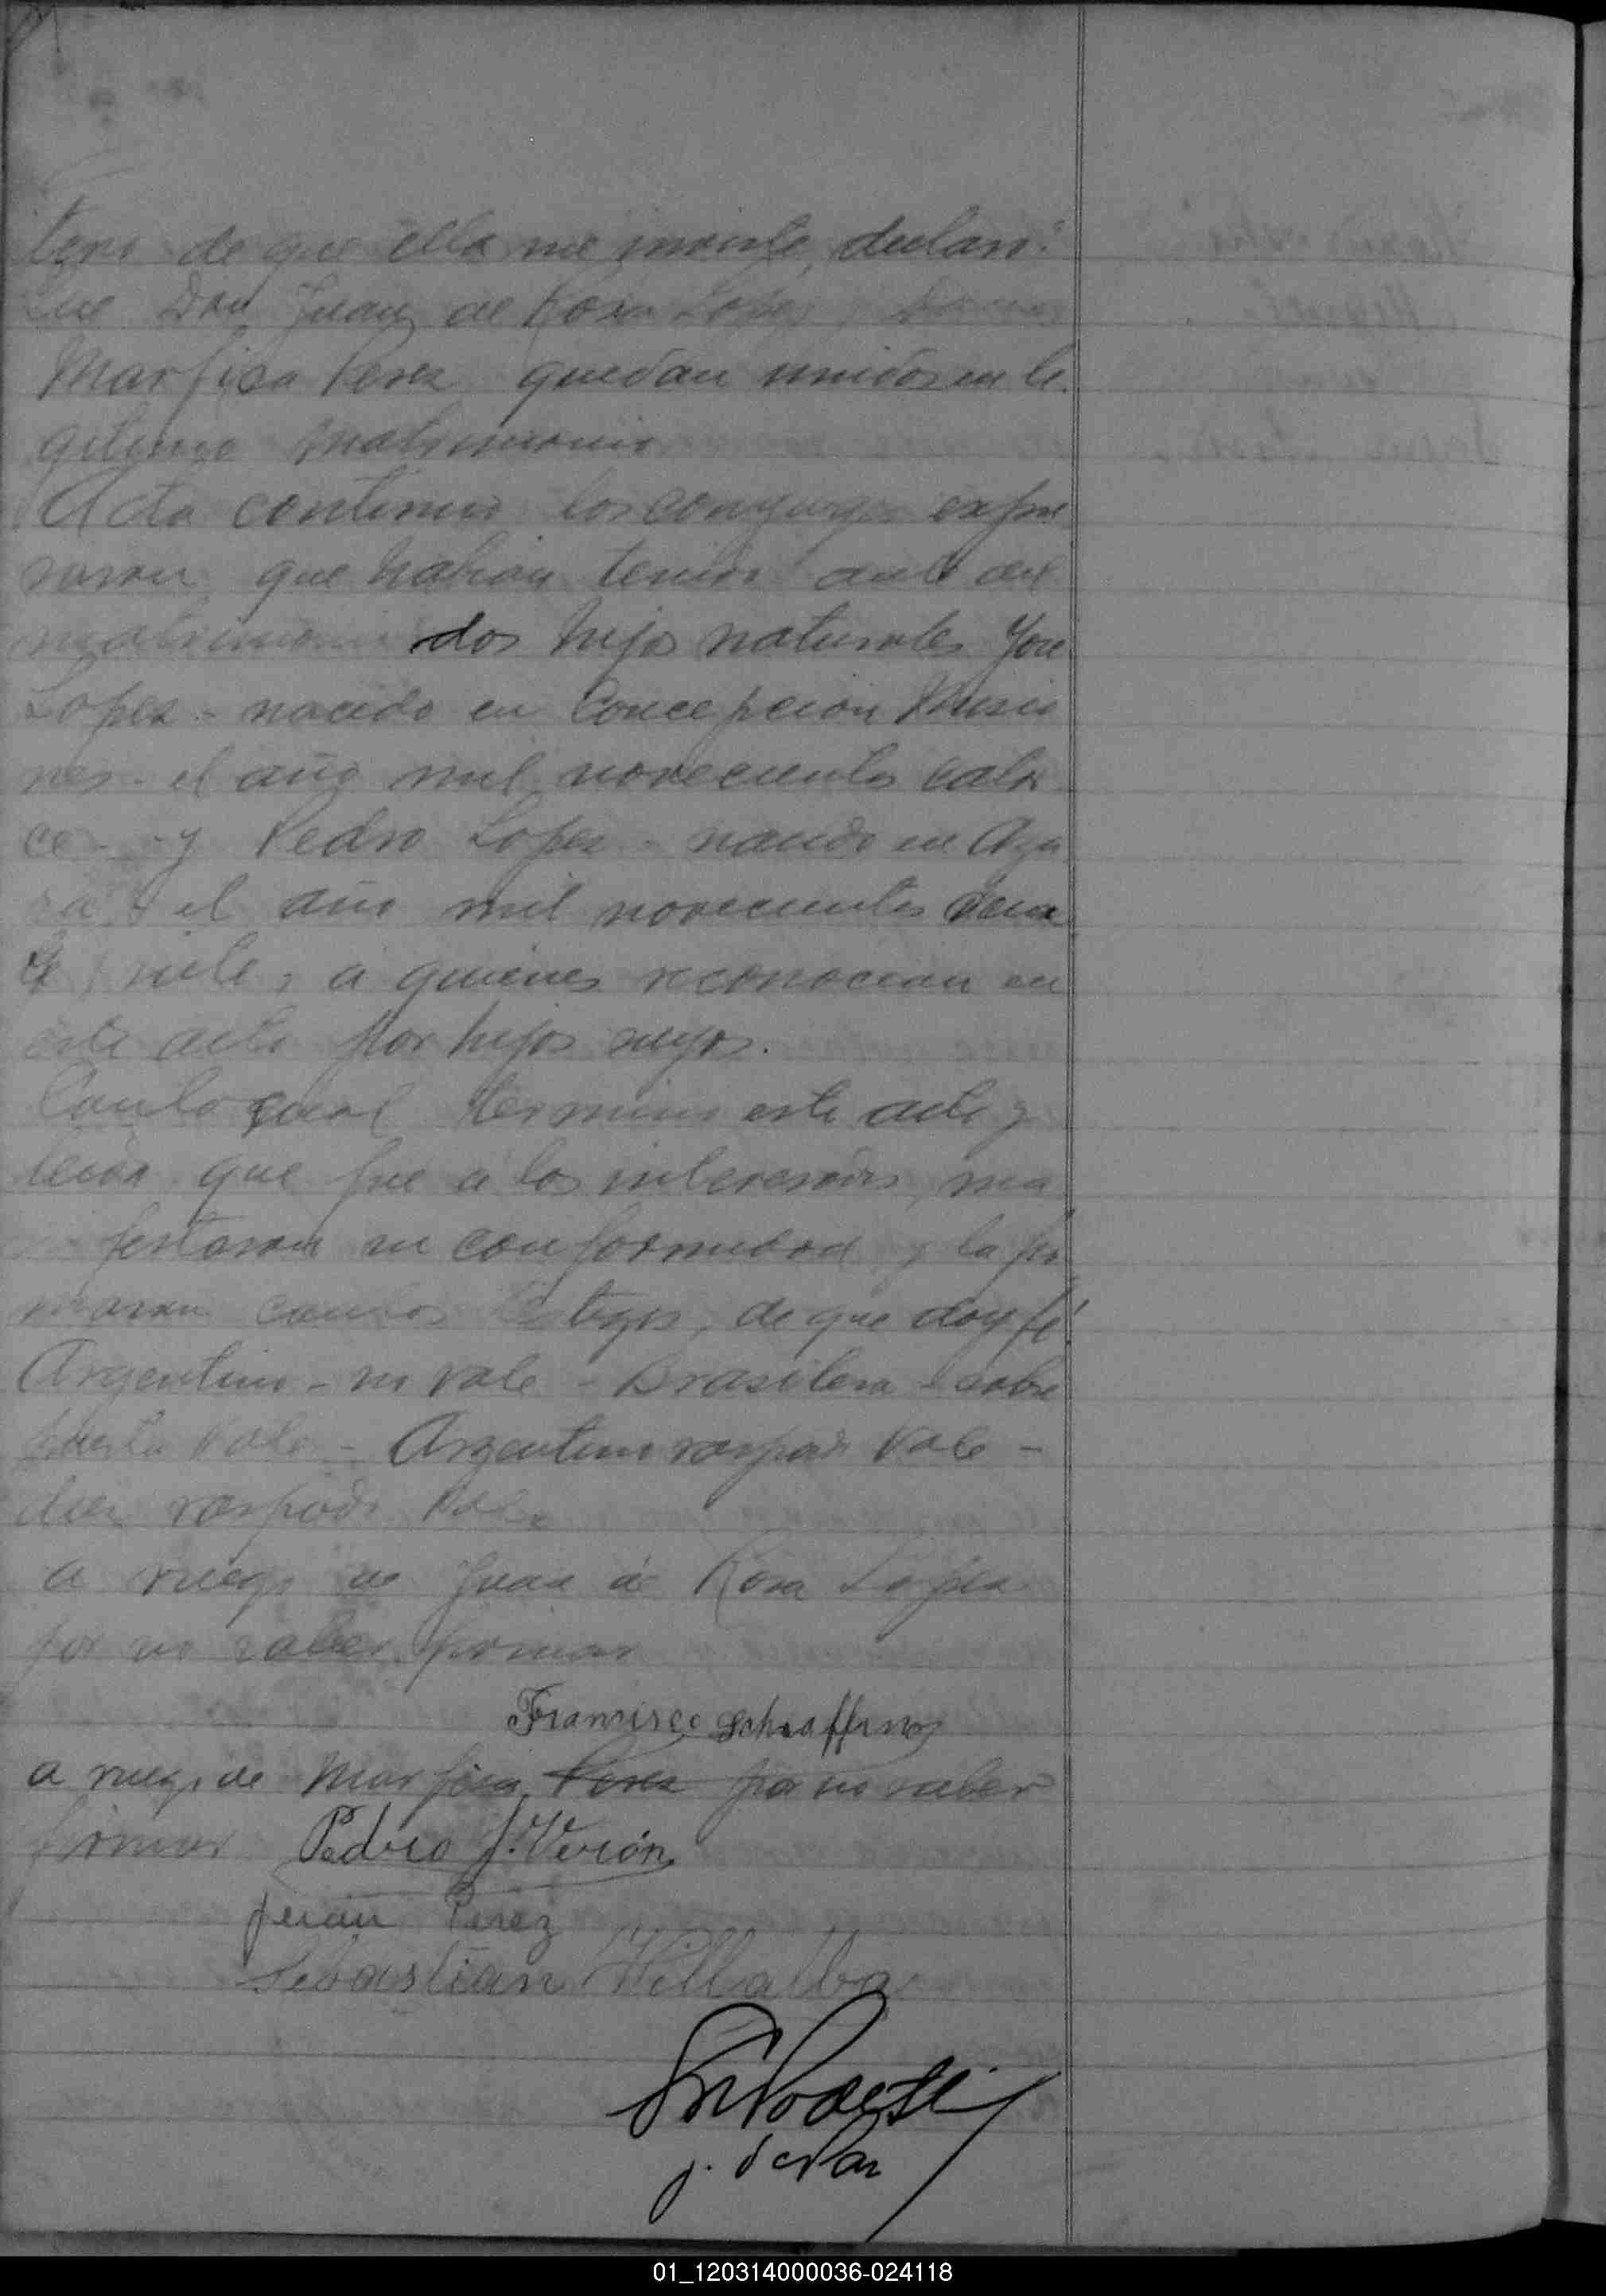 de que ella me inviste, declaró:
que Don Juan de Rosa Lopez y
Marfisa Perez quedan unidos en le
gitimo matrimonio
Acto continuo los conyuges expre
saron que habian tenido antes del
matrimonio dos hijos naturales Jose
Lopez - nacido en Concepcion Misio
nes - el año mil novecientos cator
ce - y Pedro Lopez - nacido en Aza
ra, el año mil novecientos
y siete, á quienes reconocian en
este acto por hijos suyos.
Con lo cual termino este acto y
leida que fue a los interesados, ma
festaron su conformidad y la fir
maron con los testigos, de que doy fé
Argentino - no vale - Brasilera - sobre
puesta vale - Argentino raspado vale -
raspado vale
a ruego de Juan de Rosa Lopez
por no saber firmar
Francisco
a ruego de Marfisa Perez por no saber
firmar Pedro J. Verón
Juan Perez
Sebastian Villalba
Podesti
J. de Paz
01_120314000036-024118